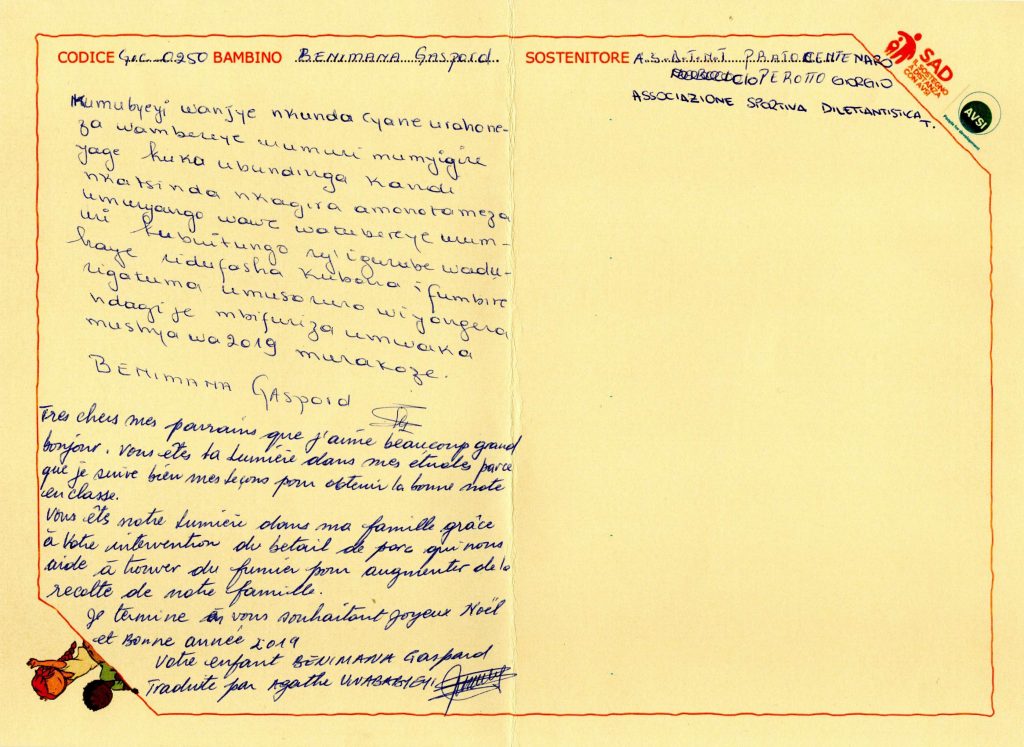 CODICE GIC 0250 BAMBINO BENIMANA Gaspard SOSTENITORE A.S.A.T.N.T PRATOCENTENARO
PEROTTO GIORGIO
ASSOCIAZIONE SPORTIVA DILETTANTISTICA T.
SAD
IL SOSTEGNO
A DISTANZA
CON AVSI
AVSI
People for development
Kumubyeyi wanjye nkunda cyane urahone-
za wambereye urumuri mumyigire
yage kuka ubundinga kandi
nkatsinda nkagira amonotameza
umuryango wawe watubereye urum-
uri kubwitungo ry'igurube wadu-
haye ridufasha kubona ifumbire
rigatuma umusaruro wiyongera
ndagije mbifuriza umwaka
mushya wa 2019 murakoze.
BENIMANA GASPARD
Tres chers mes parrains que j'aime beaucoup grand
bonjour. Vous êtes la Lumière dans mes études parce
que je suive bien mes leçons pour obtenir la bonne note
en classe.
Vous êts notre Lumière dans ma famille grâce
à Votre intervention du betail de porc qui nous
aide à trouver du fumier pour augmenter de la
recolte de notre famille.
Je termine en vous souhaitant Joyeux Noël
et Bonne année 2019
Votre enfant BENIMANA Gaspard
Traduite par Agathe UWABABYEYI